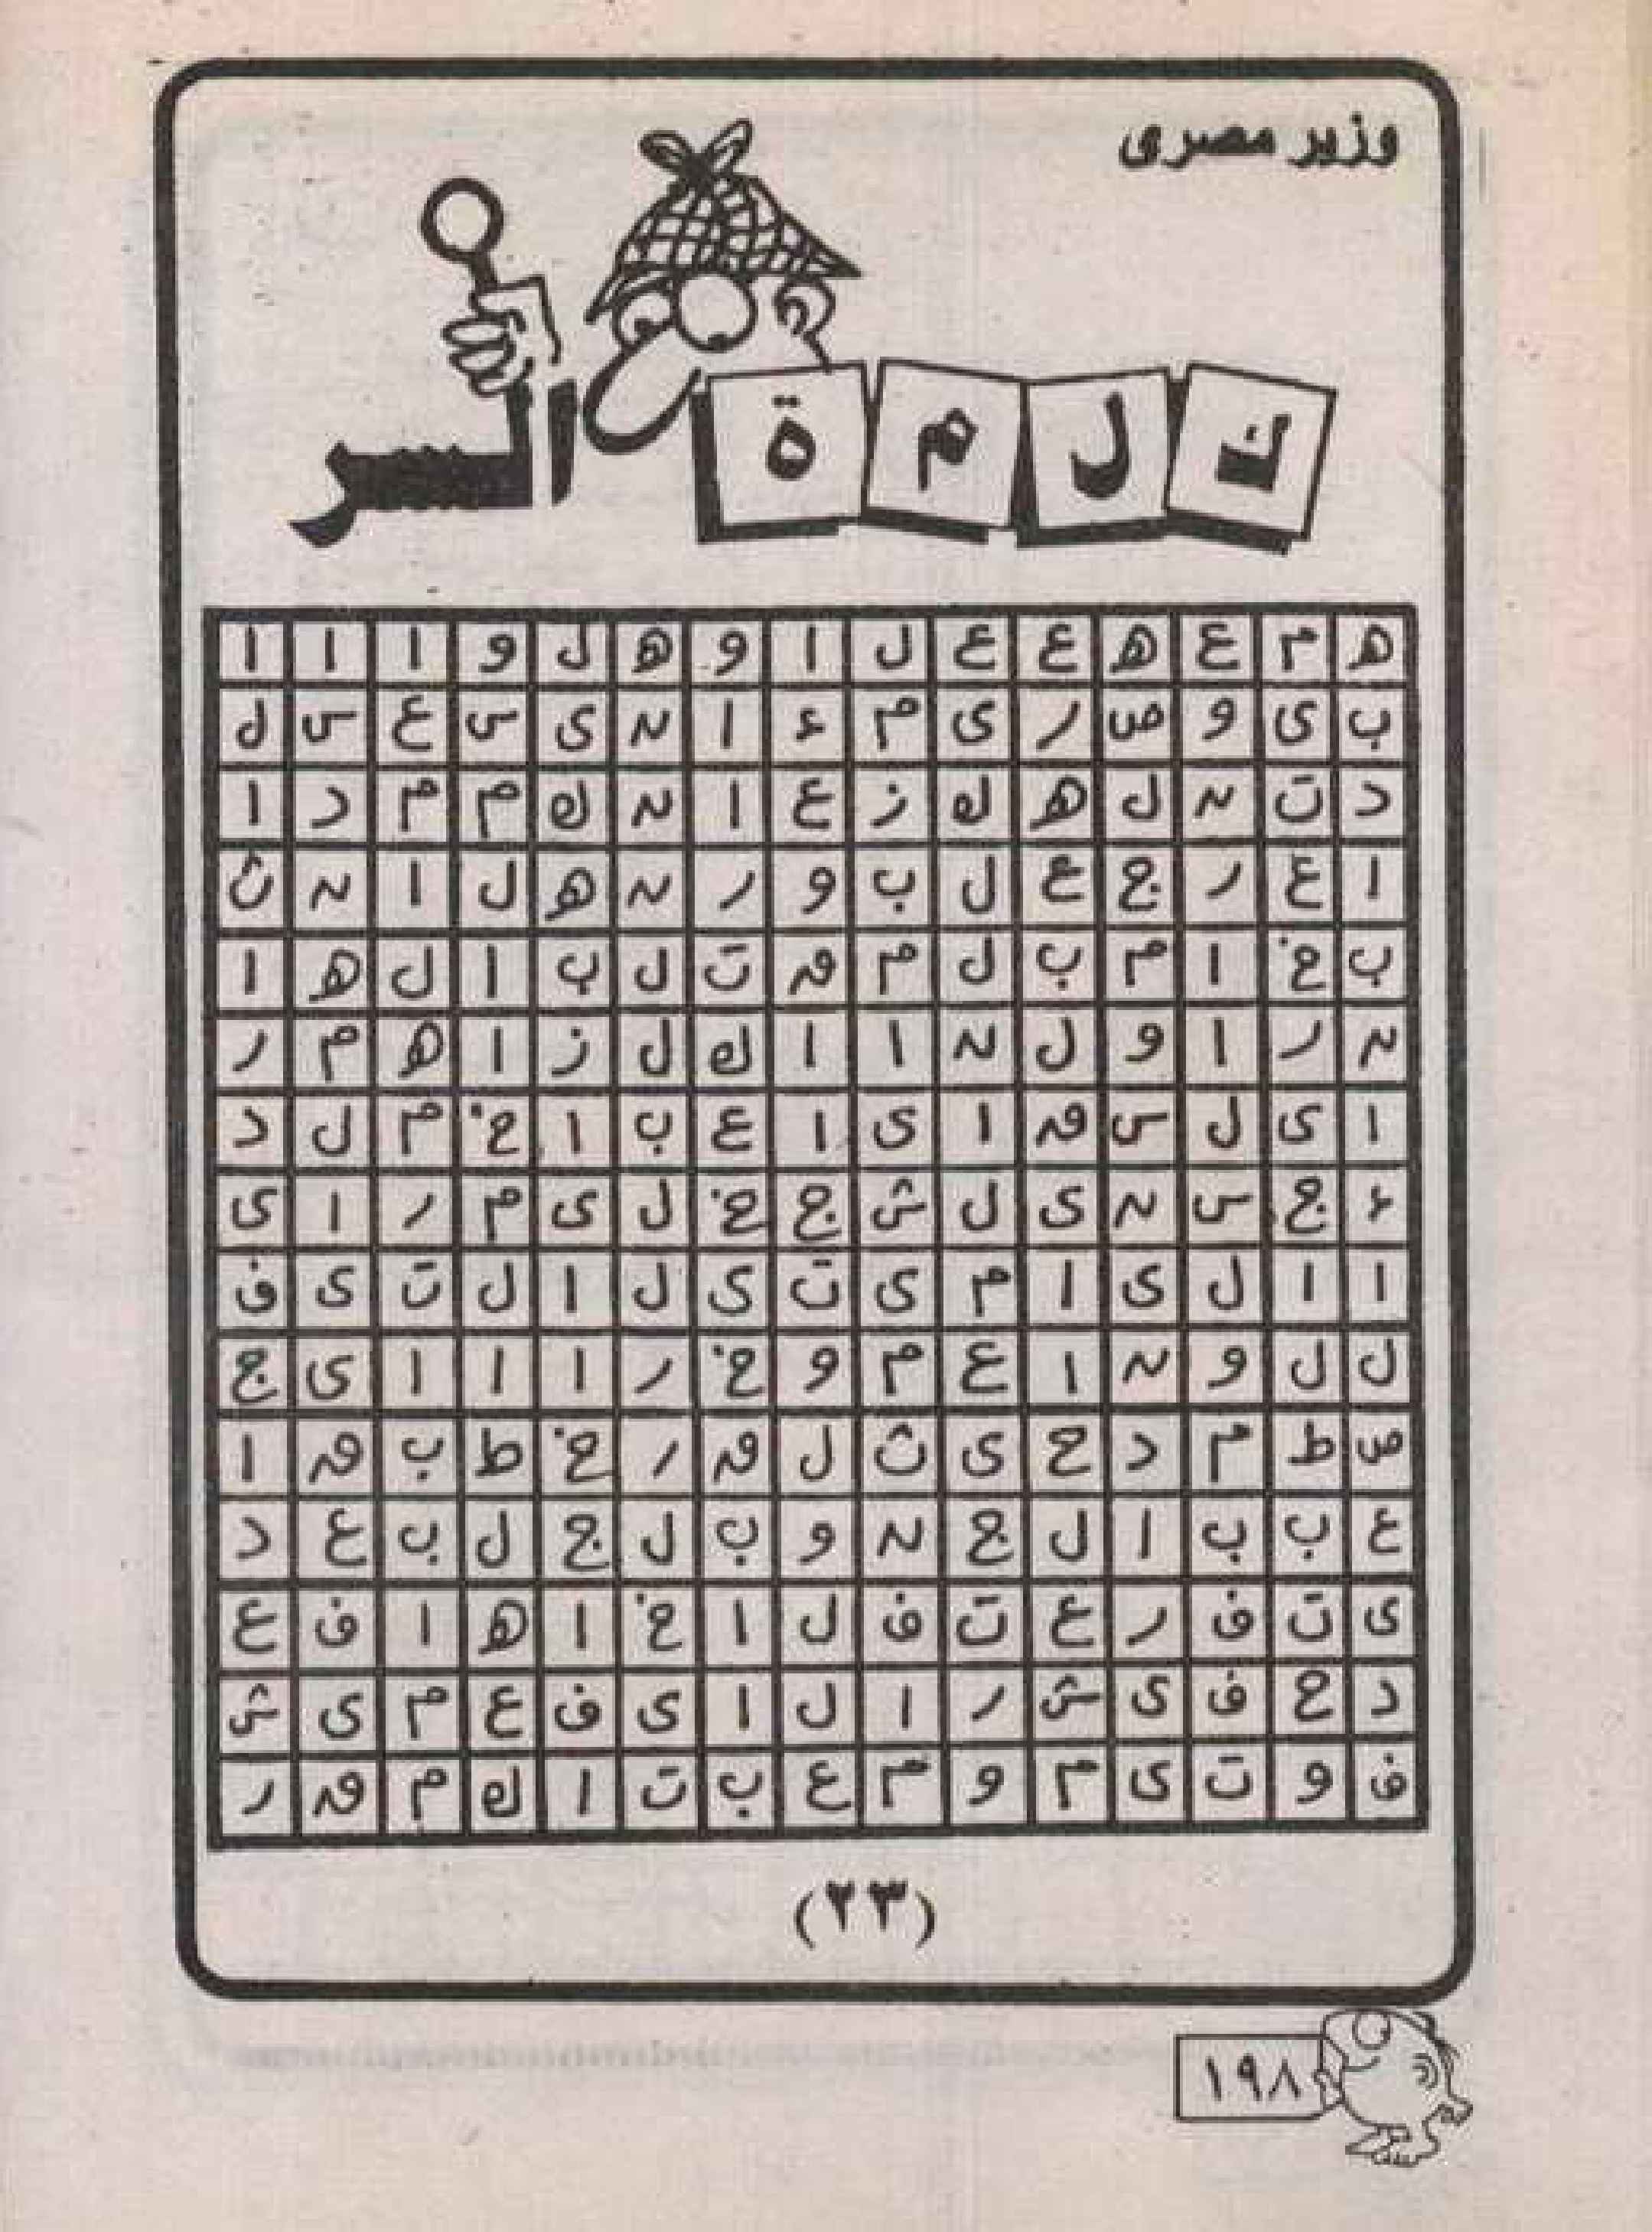 وزير مصرى
كلمة السر
ه م ع ه ع ع ل ا و ه ل و ا ا ا
ب ى و ص ر ى م ء ا نـ ى س ع س ل
د ت نـ ل ه ك ز ع ا نـ ك م م د ا
ا ع ر ج ع ل ب و ر نـ ه ل ا نـ ث
ب خ ا م ب ل م قـ ت ل ب ا ل ه ا
نـ ر ا و ل نـ ا ا ك ل ز ا ه م ر
ا ى ل س قـ ا ى ا ع ب ا خ م ل د
ء ج س نـ ى ل ش ج خ ل ى م ر ا ى
ا ا ل ى ا م ى ت ى ل ا ل ت ى ف
ل ل و نـ ا ع م و خ ر ا ا ا ى ج
ص ط م د ح ى ث ل قـ ر خ ط ب قـ ا
ع ب ب ا ل ج نـ و ب ل ج ل ب ع د
ى ت ف ر ع ت ف ل ا خ ا ه ا ف ع
د ح ف ى ش ر ا ل ا ى ف ع م ى ش
ف و ت ى م و م ع ب ت ا ك م قـ ر
(٢٣)
١٩٨